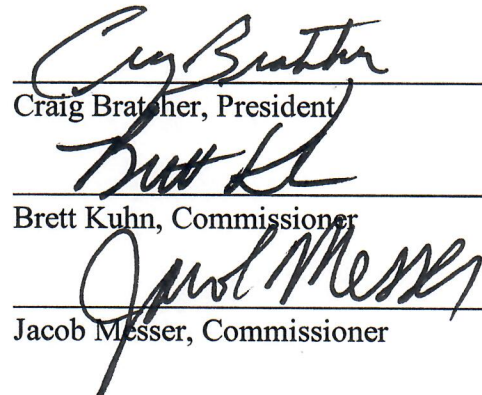 Craig Bratcher
Craig Bratcher, President
Brett Kuhn
Brett Kuhn, Commissioner
Jacob Messer
Jacob Messer, Commissioner